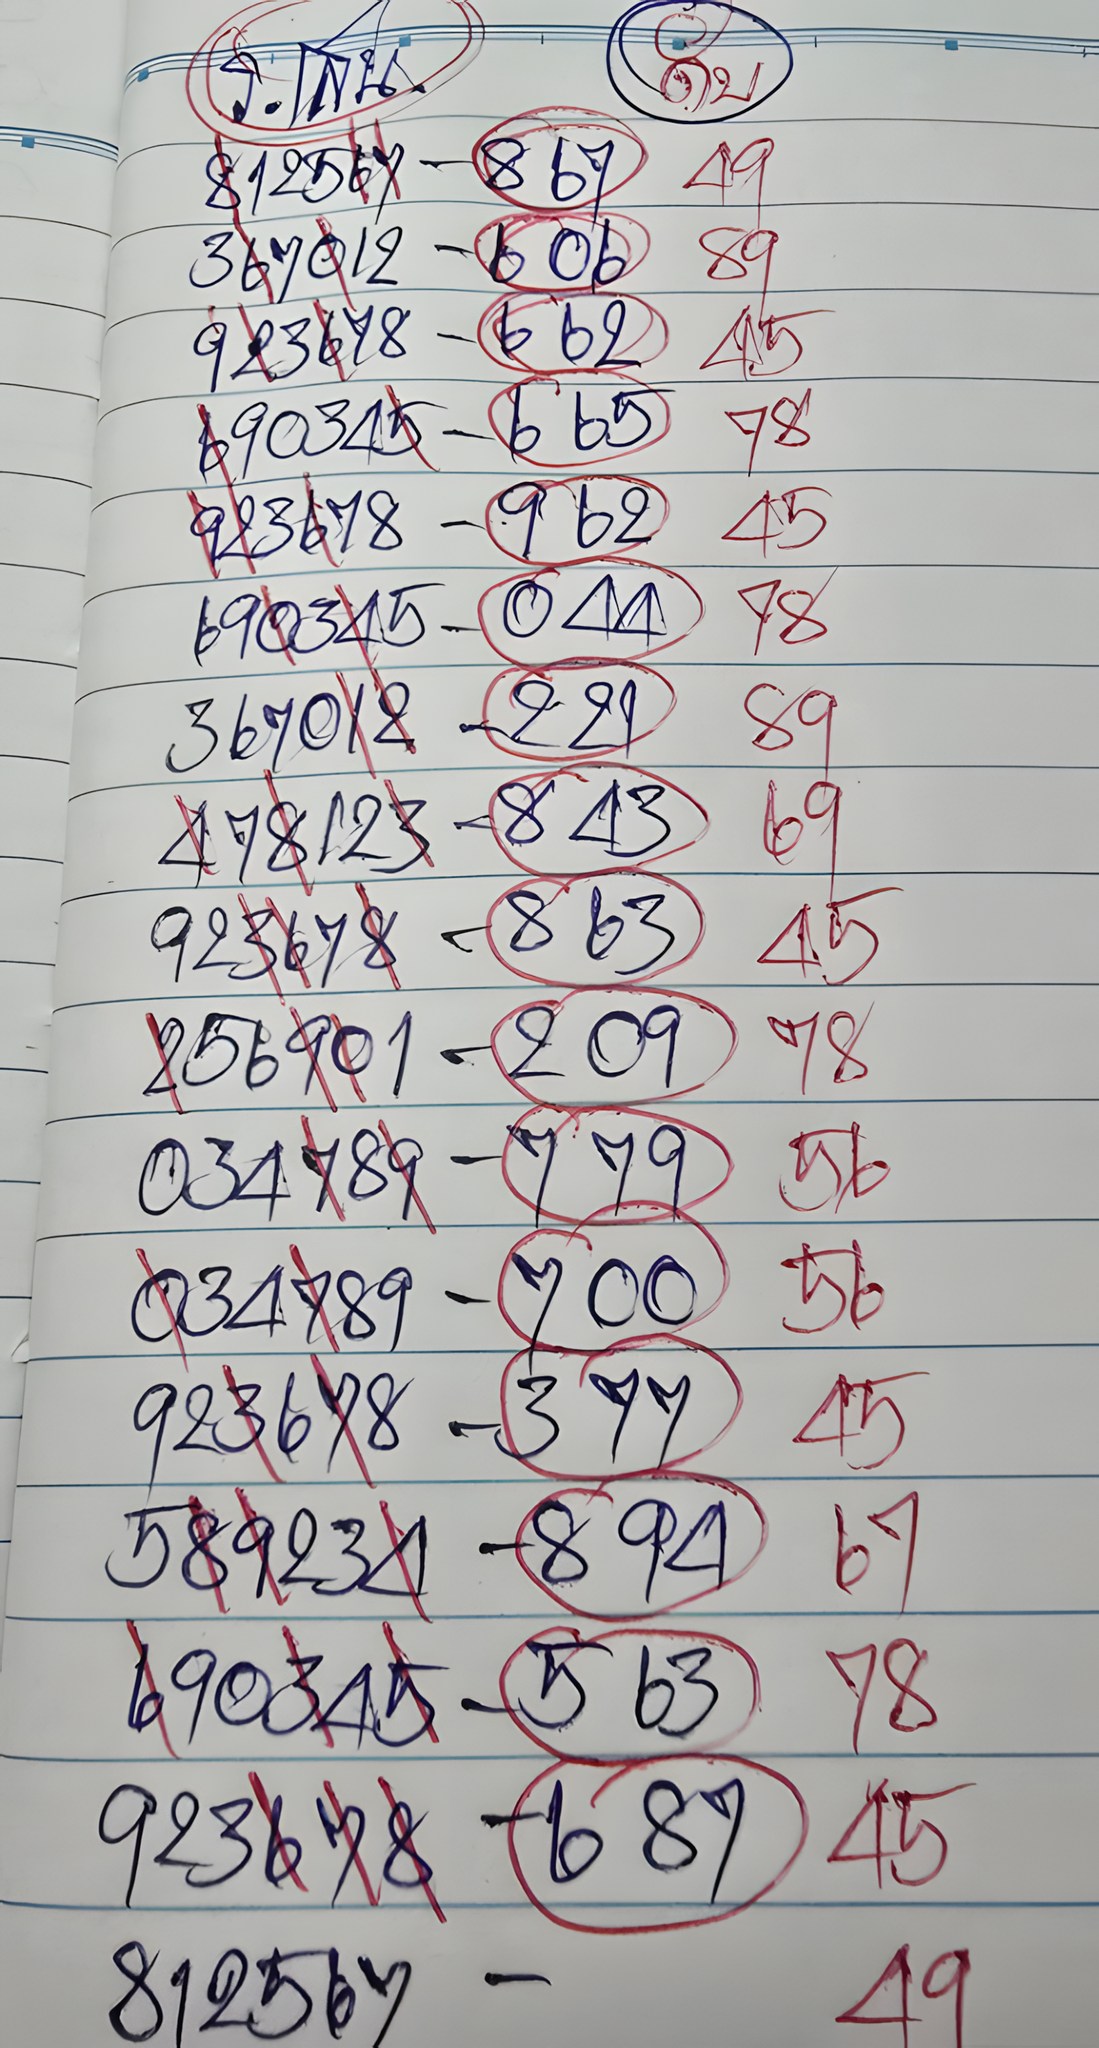 ร.โต้น. ดับ
812567 - 867 49
367012 - 606 89
923678 - 662 45
690345 - 665 78
923678 - 962 45
690345 - 044 78
367012 - 221 89
478123 - 843 69
923678 - 863 45
256901 - 209 78
034789 - 779 56
034789 - 700 56
923678 - 377 45
589234 - 894 67
690345 - 563 78
923678 - 687 45
812567 - 49